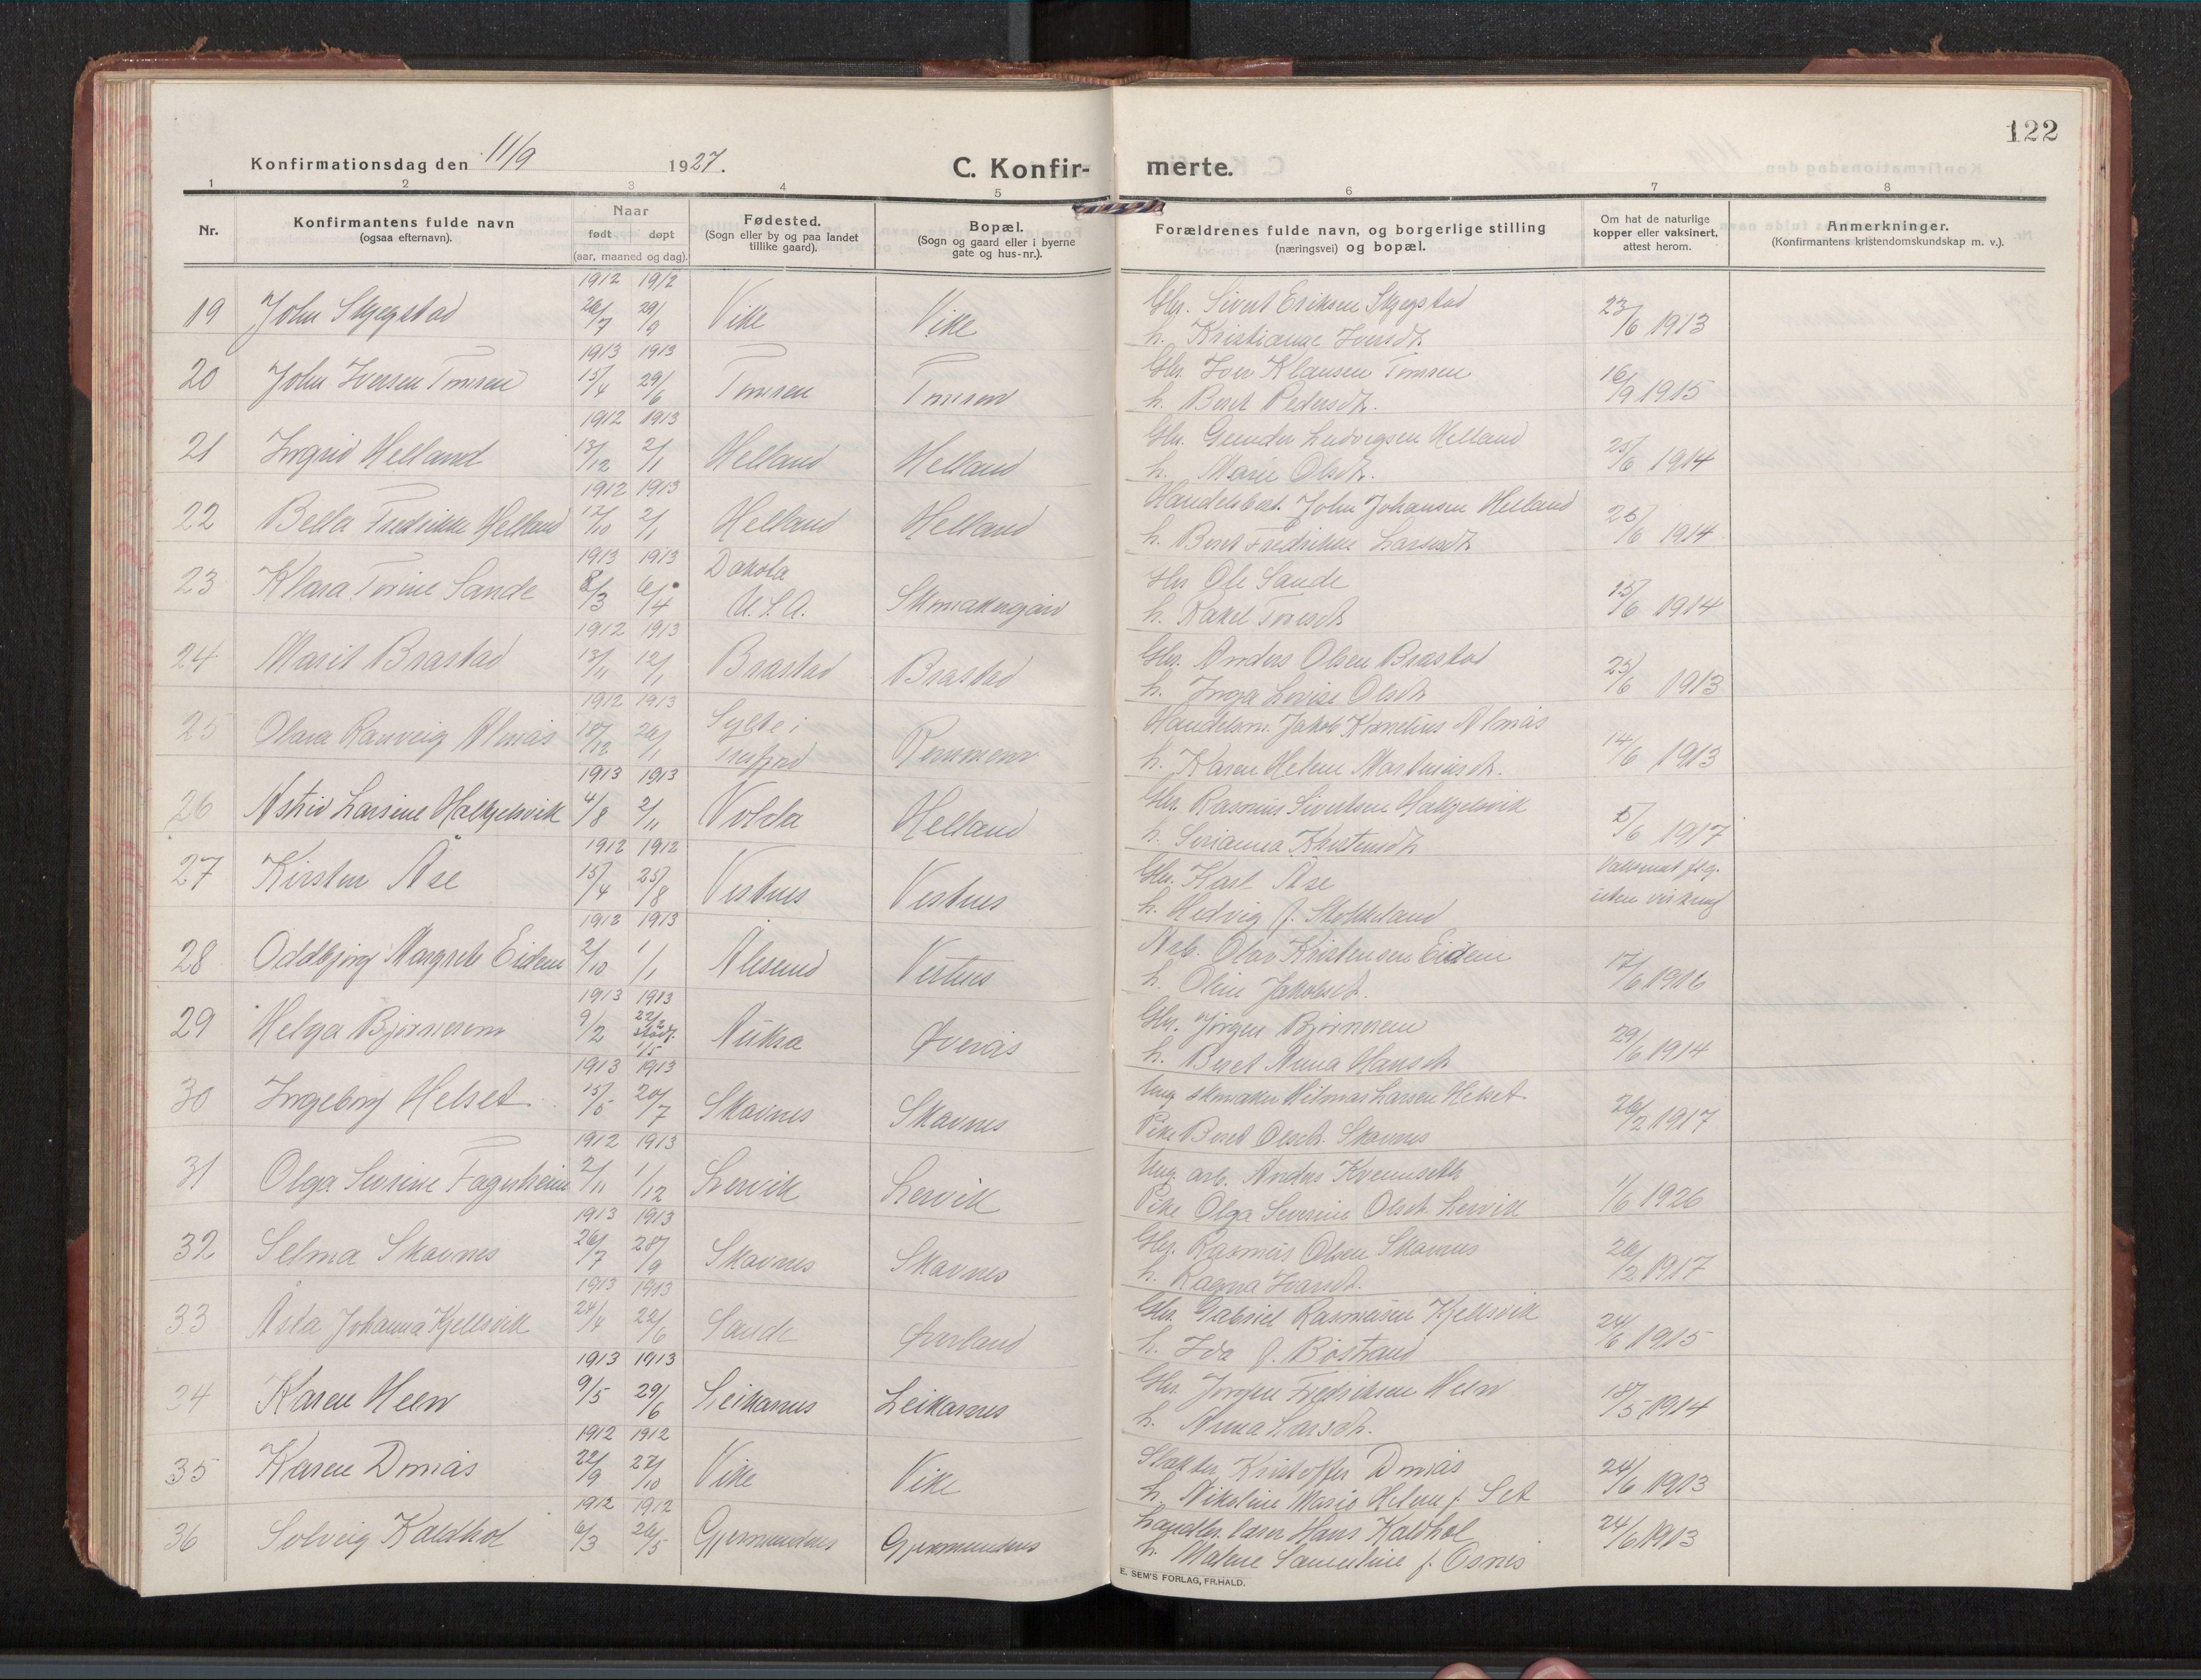 122
Konfirmationsdag den 11/9 1927.
C. Konfir- merte.
1 2 3 4 5 6 7 8
Nr.
Konfirmantens fulde navn
(ogsaa efternavn).
Naar
født døpt
(aar, maaned og dag).
Fødested.
(Sogn eller by og paa landet
tillike gaard).
Bopæl.
(Sogn og gaard eller i byerne
gate og hus-nr.).
Forældrenes fulde navn, og borgerlige stilling
(næringsvei) og bopæl.
Om hat de naturlige
kopper eller vaksinert,
attest herom.
Anmerkninger.
(Konfirmantens kristendomskundskap m. v.).
1912 1912
19 John Skjegstad 26/7 29/9 Vike Vike Gbr. Sivert Eriksen Skjegstad
h. Kristianne Iversdt. 23/6 1913
1913 1913
20 John Iversen Tomren 15/4 29/6 Tomren Tomren Gbr. Iver Klausen Tomren
h. Beret Pedersdt. 16/9 1915
1912 1913
21 Ingrid Helland 13/12 2/1 Helland Helland Gbr. Gunder Ludvigsen Helland
h. Marie Olsdt. 25/6 1914
1912 1913
22 Bella Fredrikke Helland 12/10 2/1 Helland Helland Handelsbest. John Johansen Helland
h. Beret Fredrikke Larsdt. 25/6 1914
1913 1913
23 Klara Torine Sande 8/3 6/4 Dakota
U.S.A. Skomakergård Gbr. Ole Sande
h. Rakel Toresdt. 25/6 1914
1912 1913
24 Marit Brastad 13/11 12/1 Brastad Brastad Gbr. Anders Olsen Brastad
h. Inga Lovise Olsdt. 25/6 1913
1912 1913
25 Olara Ranveig Almås 18/12 26/1 Sylte i
Tresfjord Remmem Handelsm. Jakob Kornelius Almås
h. Karen Helene Martinusdt. 14/6 1913
1913 1913
26 Astrid Larsine Halkjelsvik 4/8 2/11 Volda Helland Gbr. Rasmus Sivertsen Halkjelsvik
h. Serianna Karstensdt. 5/6 1917
1912 1912
27 Kirsten Åse 15/4 25/8 Vestnes Vestnes Gbr. Karl Åse
h. Hedvig f. Stokkeland Vaksinert flg.
uten virkning
1912 1913
28 Oddbjørg Margrete Eidem 2/10 1/1 Ålesund Vestnes Arb. Olav Kristensen Eidem
h. Oline Jakobsdt. 17/6 1916
1913 1913
29 Helga Bjørnerem 9/2 22/2
stadf.
1/5 Aukra Øverås Gbr. Jørgen Bjørnerem
h. Beret Anna Hansdt. 29/6 1914
1913 1913
30 Ingeborg Helset 15/5 20/7 Skavnes Skavnes Ung. skomaker Hilmar Larsen Helset
Pike Beret Olsdt. Skavnes 26/2 1917
1912 1913
31 Olga Severine Fagerheim 2/11 1/12 Lervik Lervik Ung. arb. Anders Kvennseth
Pike Olga Severine Olsdt. Lervik 1/6 1926
1913 1913
32 Selma Skavnes 26/7 28/9 Skavnes Skavnes Gbr. Rasmus Olsen Skavnes
h. Ragna Ivarsdt. 26/2 1917
1913 1913
33 Åsta Johanna Kjellsvik 24/4 22/6 Sande Øverland Gbr. Gabriel Rasmussen Kjellsvik
h. Ida f. Bøstrand 24/6 1915
1913 1913
24 Karen Heen 9/5 29/6 Leikarnes Leikarnes Gbr. Jørgen Fredriksen Heen
h. Anna Larsdt. 18/5 1914
1912 1912
35 Karen Drnås 22/9 27/10 Vike Vike Slakter Kristoffer Drnås
h. Nikoline Marie Helene f. Set 24/6 1913
1912 1912
36 Solveig Kaldhol 6/3 26/5 Gjermundnes Gjermundnes Landbr. lærer Hans Kaldhol
h. Malene Samueline f. Osnes 24/6 1913
E. SEM'S FORLAG, FR.HALD.